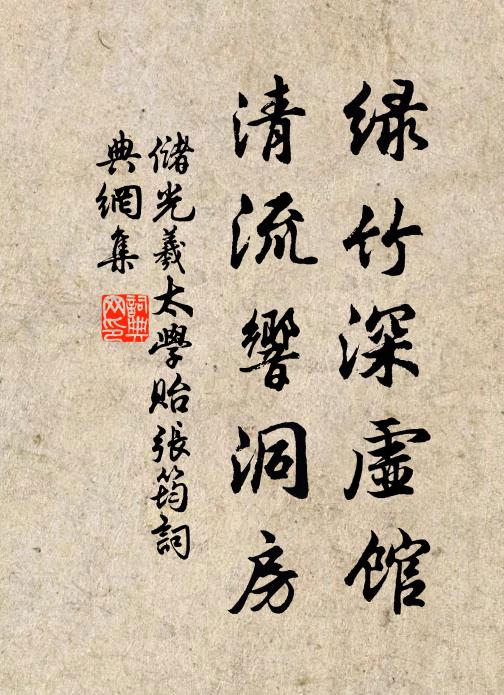 緑竹深虛館
清流響洞房
儲光羲太學貽張筠詞
典網集
詞典
网印